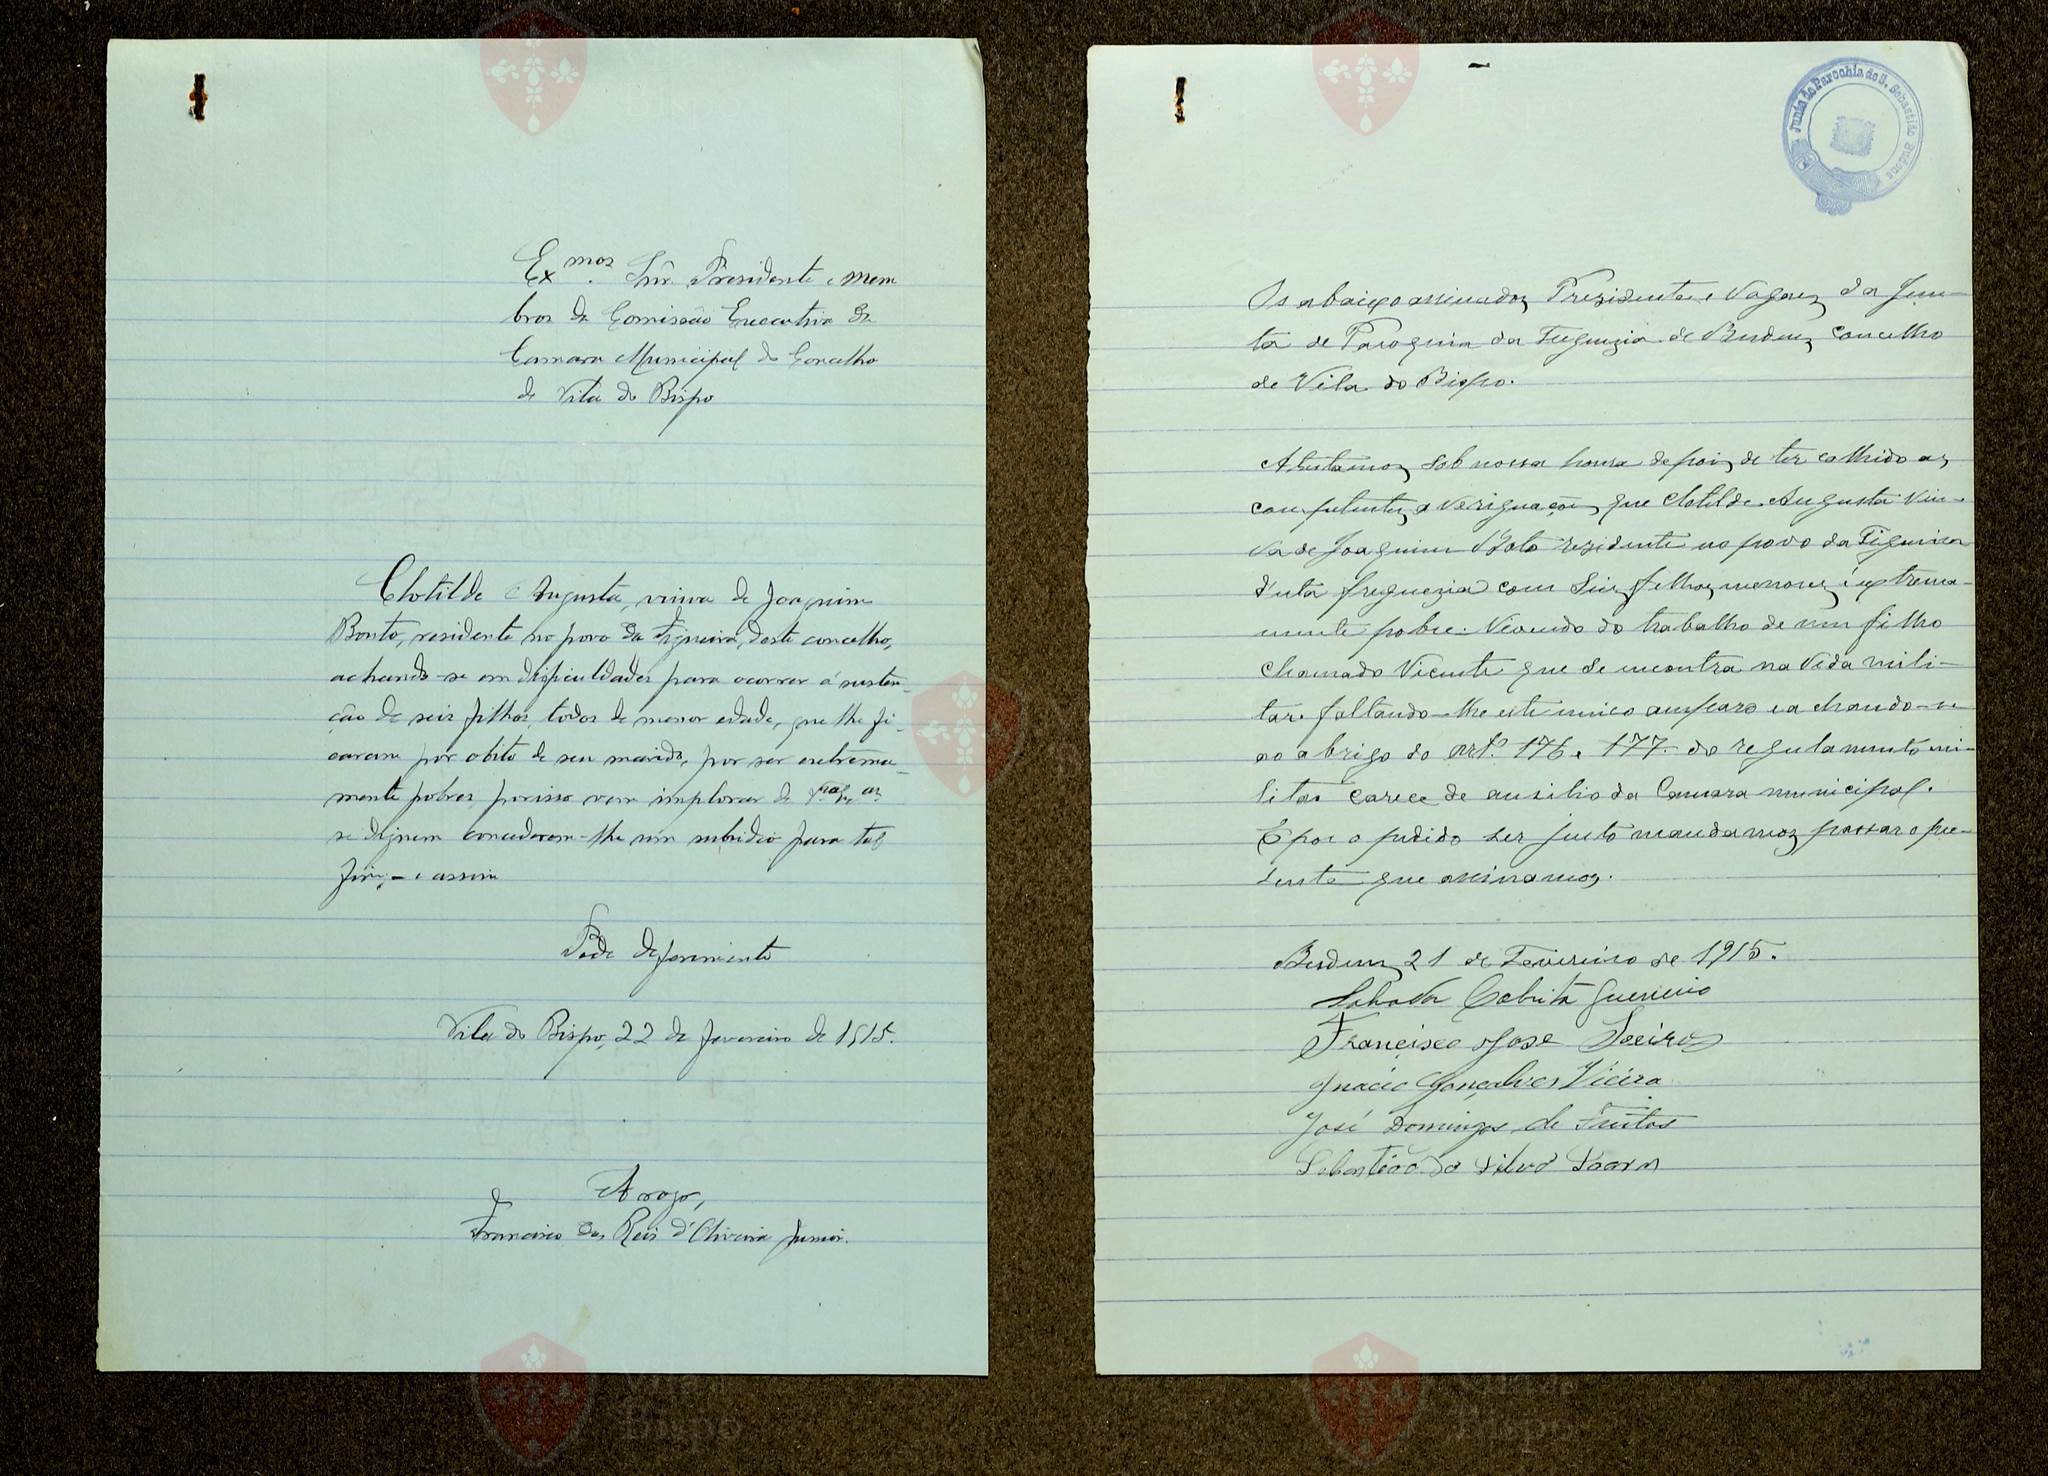 Ex.mos Snr. Presidente e Mem
bros da Comissão Executiva da
Camara Municipal do Concelho
de Vila do Bispo
Clotilde Augusta, viuva de Joaquim
Bouto, residente no povo da Figueira, deste concelho,
achando-se em dificuldades para ocorrer á susten-
ção de seis filhos, todos de menor edade, que lhe fi-
caram por obito de seu marido, por ser extrema-
mente pobre, porisso vem implorar de
se dignem concederem-lhe um subsidio para tal
fim, - e assim
Pede deferimento
Vila do Bispo, 22 de fevereiro de 1915.
A rogo,
Francisco dos Reis d'Oliveira Junior.
Junta de Parochia de S. Sebastião Budens
Os abaixo assinados Presidente e Vogaes da Jun-
ta de Paroquia da Freguezia de Budens concelho
de Vila do Bispo.
Atestamos sob nossa honra depois de ter colhido as
competentes averiguações que Clotilde Augusta viu-
va de Joaquim Boto rezidente no povo da Figueira
d'esta freguezia com seis filhos menores é extrema-
mente pobre. Vivendo do trabalho de um filho
chamado Vicente que se encontra na vida mili-
tar. faltando-lhe este unico amparo e achando-se
ao abrigo do art.º 176 e 177 do regulamento mi-
litar carece de ausilio da Camara municipal.
E por o pedido ser justo mandamos passar o pre-
sente que assinamos.
Budens 21 de Fevereiro de 1915.
Salvador Cabrita Guerreiro
Francisco José
Inacio Gonçalves Vieira
José Domingos de Freitas
Sebastião da Silva
Vila do
Bispo